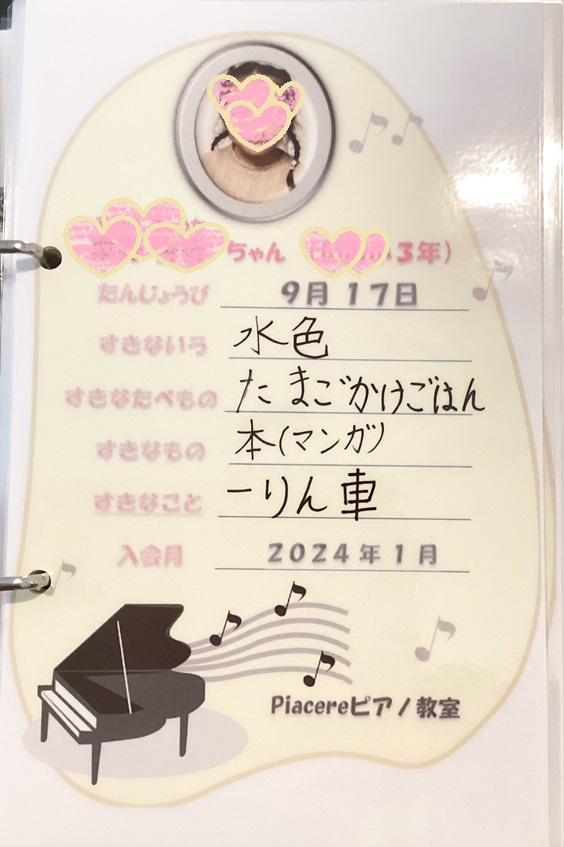 ちゃん 3年)
たんじょうび 9月17日
すきないろ 水色
すきなたべもの たまごかけごはん
すきなもの 本(マンガ)
すきなこと 一りん車
入会月 2024年1月
Piacereピアノ教室